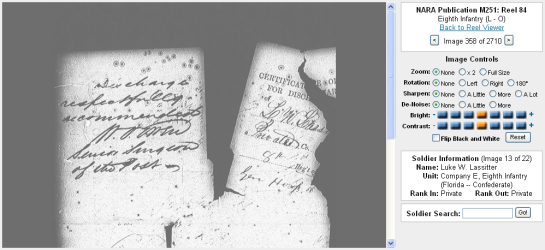 Discharge
respectfully
recommended
Senior Surgeon
of the Post
CERTIFICATE
FOR DISCH
NARA Publication M251: Reel 84
Eighth Infantry (L - O)
Back to Reel Viewer
< Image 358 of 2710 >
Image Controls
Zoom: None x 2 Full Size
Rotation: None Left Right 180°
Sharpen: None A Little More A Lot
De-Noise: None A Little More
Bright: - +
Contrast: - +
Flip Black and White Reset
Soldier Information (Image 13 of 22)
Name: Luke W. Lassitter
Unit: Company E, Eighth Infantry
(Florida -- Confederate)
Rank In: Private Rank Out: Private
Soldier Search: Go!